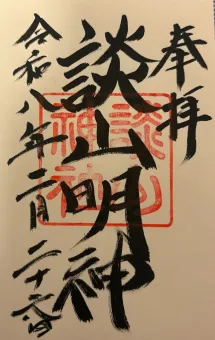 奉拝
談山明神
令和八年二月二十六日
談山
神社